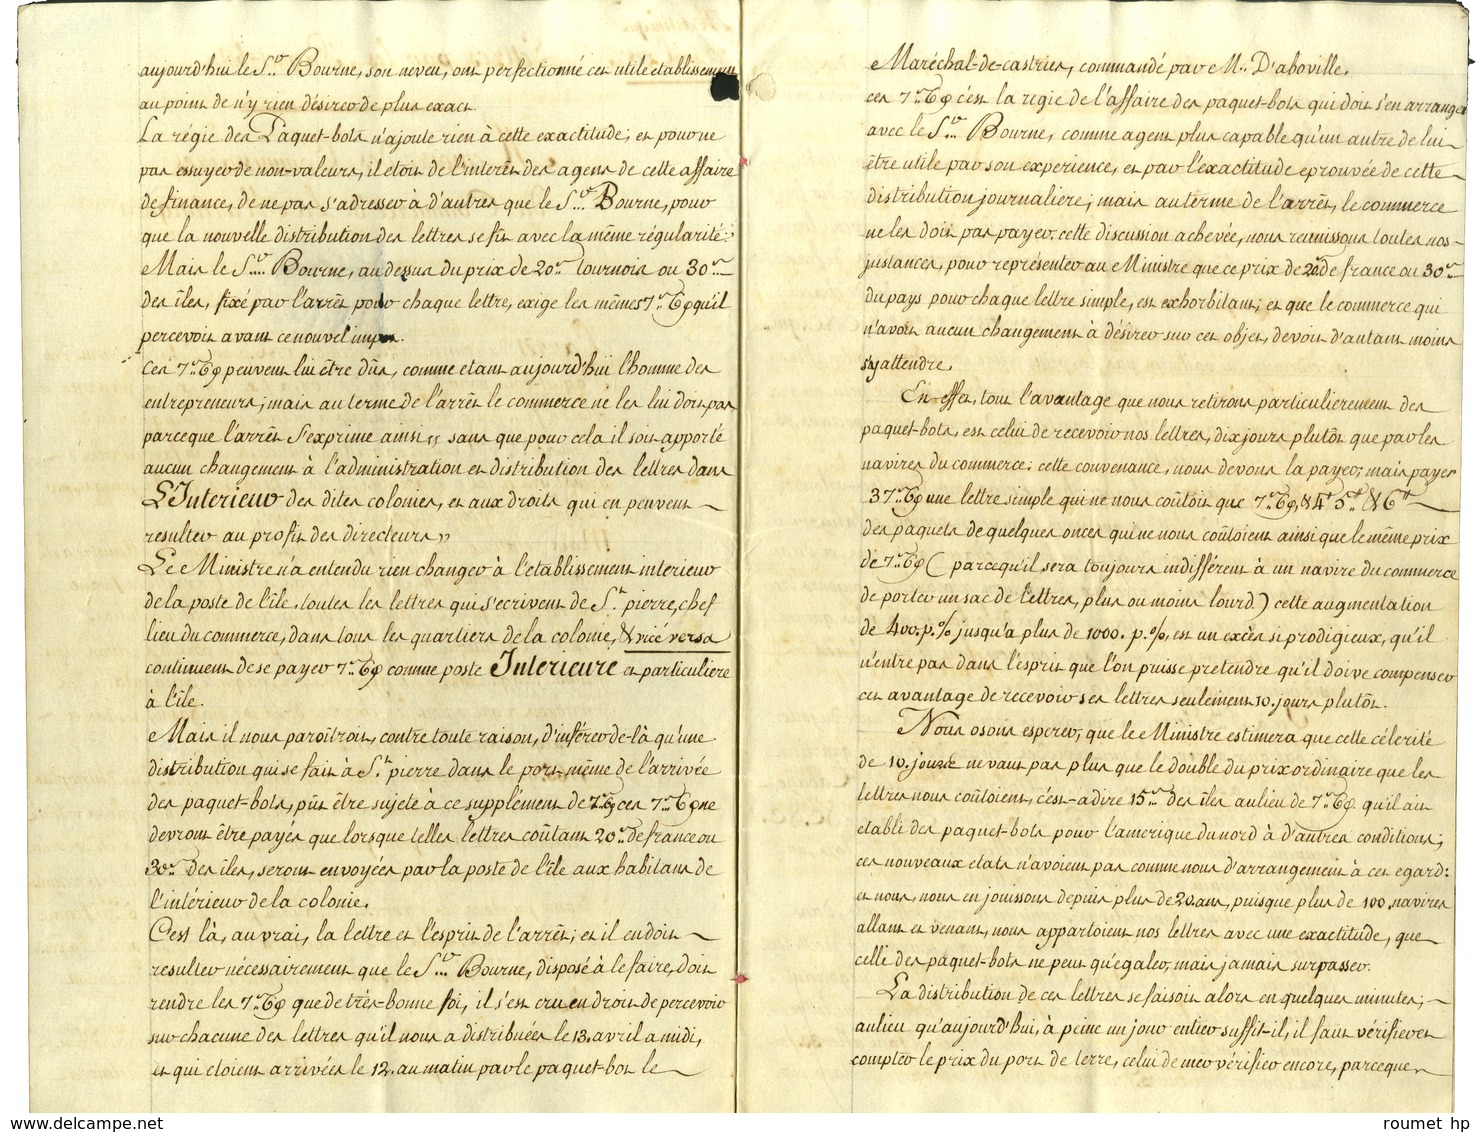 aujourd'hui le S.r Bourne, son neveu, ont perfectionné cet utile etablissement
au point de n'y rien désirer de plus exact.
La régie des Paquet-bots n'ajoute rien à cette exactitude; et pour ne
pas essuyer de non-valeurs, il etoit de l'interêt des agens de cette affaire
de finance, de ne pas s'adresser à d'autres que le S.r Bourne, pour
que la nouvelle distribution des lettres se fit avec la même régularité.
Mais le S.r Bourne, au dessus du prix de 20.s tournois ou 30.s
des îles, fixé par l'arrêt pour chaque lettre, exige les mêmes 7.s 6 qu'il
percevoit avant ce nouvel impot.
Ces 7.s 6 peuvent lui être dûs, comme etant aujourd'hui l'homme des
entrepreneurs; mais au terme de l'arrêt le commerce ne les lui doit pas,
parceque l'arrêt s'exprime ainsi " sans que pour cela il soit apporté
aucun changement à l'administration et distribution des lettres dans
L'Interieur des dites colonies, et aux droits qui en peuvent
resulter au profit des directeurs "
Le Ministre n'a entendu rien changer à l'etablissement interieur
de la poste de l'île. toutes les lettres qui s'ecrivent de S.t pierre, chef
lieu du commerce, dans tous les quartiers de la colonie, & vice versa
continuent de se payer 7.s 6 comme poste Interieure et particuliere
à l'île.
Mais il nous paroîtroit, contre toute raison, d'inférer de-là qu'une
distribution qui se fait à S.t pierre dans le port même de l'arrivée
des paquet-bots, pût être sujete à ce supplément de 7.s 6 ces 7.s 6 ne
devront être payés que lorsque telles lettres coûtant 20.s de france ou
30.s des îles, seront envoyées par la poste de l'île aux habitans de
l'intérieur de la colonie.
C'est là, au vrai, la lettre et l'esprit de l'arrêt; et il en doit
resulter nécessairement que le S.r Bourne, disposé à le faire, doit
rendre les 7.s 6 que de très-bonne foi, il s'est cru en droit de percevoir
sur chacune des lettres qu'il nous a distribuées le 13. avril a midi,
et qui etoient arrivées le 12. au matin par le paquet-bot le
Maréchal-de-castries, commandé par M. D'aboville.
ces 7.s 6 c'est la regie de l'affaire des paquet-bots qui doit s'en arranger
avec le S.r Bourne, comme agent plus capable qu'un autre de lui
être utile par son experience, et par l'exactitude eprouvée de cette
distribution journaliere; mais au terme de l'arrêt, le commerce
ne les doit pas payer. cette discussion achevée, nous reunissons toutes nos
instances, pour représenter au Ministre que ce prix de 20.s de france ou 30.s
du pays pour chaque lettre simple, est exhorbitant; et que le commerce qui
n'avoit aucun changement à désirer sur cet objet, devoit d'autant moins
s'y attendre.
En effet, tout l'avantage que nous retirons particulierement des
paquet-bots, est celui de recevoir nos lettres, dix jours plutôt que par les
navires du commerce: cette convenance, nous devons la payer; mais payer
37.s 6 une lettre simple qui ne nous coûtoit que 7.s 6, & 4tt 5tt & 6tt
des paquets de quelques onces qui ne nous coûtoient ainsi que le même prix
de 7.s 6 (parcequ'il sera toujours indifférent à un navire du commerce
de porter un sac de lettres, plus ou moins lourd) cette augmentation
de 400. p.% jusqu'a plus de 1000. p.%, est un excès si prodigieux, qu'il
n'entre pas dans l'esprit que l'on puisse pretendre qu'il doive compenser
cet avantage de recevoir ses lettres seulement 10. jours plutôt.
Nous osons esperer, que le Ministre estimera que cette célerité
de 10. jours ne vaut pas plus que le double du prix ordinaire que les
lettres nous coûtoient, c'est-a-dire 15.s des îles au lieu de 7.s 6. qu'il ait
etabli des paquet-bots pour l'amerique du nord à d'autres conditions;
ces nouveaux etats n'avoient pas comme nous d'arrangement à cet egard:
et nous, nous en jouissons depuis plus de 20. ans, puisque plus de 100. navires
allant et venant, nous apportoient nos lettres avec une exactitude, que
celle des paquet-bots ne peut qu'égaler, mais jamais surpasser.
La distribution de ces lettres se faisoit alors en quelques minutes;
au lieu qu'aujourd'hui, à peine un jour entier suffit-il, il faut vérifier et
compter le prix du port de terre, celui de mer vérifier encore, parceque
roumet hp